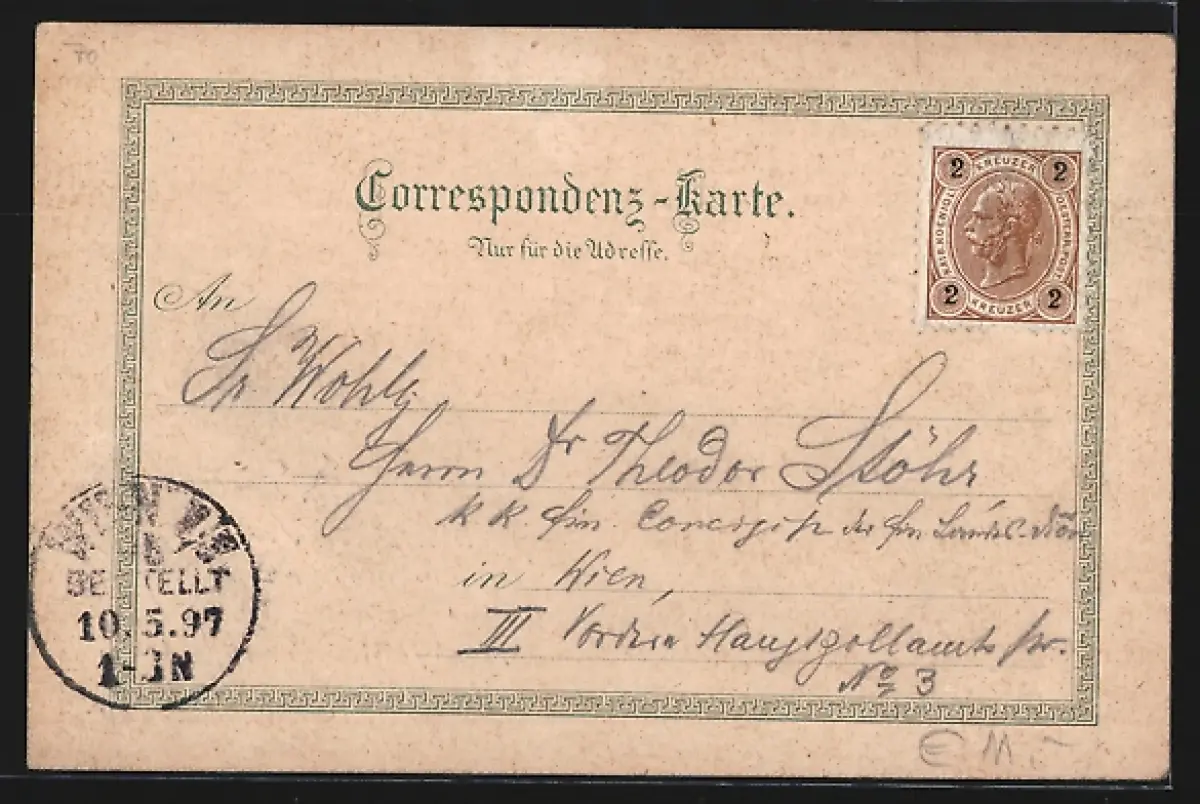 70
Correspondenz-Karte.
Nur für die Adresse.
2 KREUZER 2
KAIS. KOENIGL. OESTERR. POST
2 KREUZER 2
An
Sr Wohlg
Herrn Dr Theodor Stöhr
k k fin. Concipist der fin Landes-
in Wien,
III Vordere Hauptzollamts str.
No 3
WIEN
BESTELLT
10.5.97
1-3N